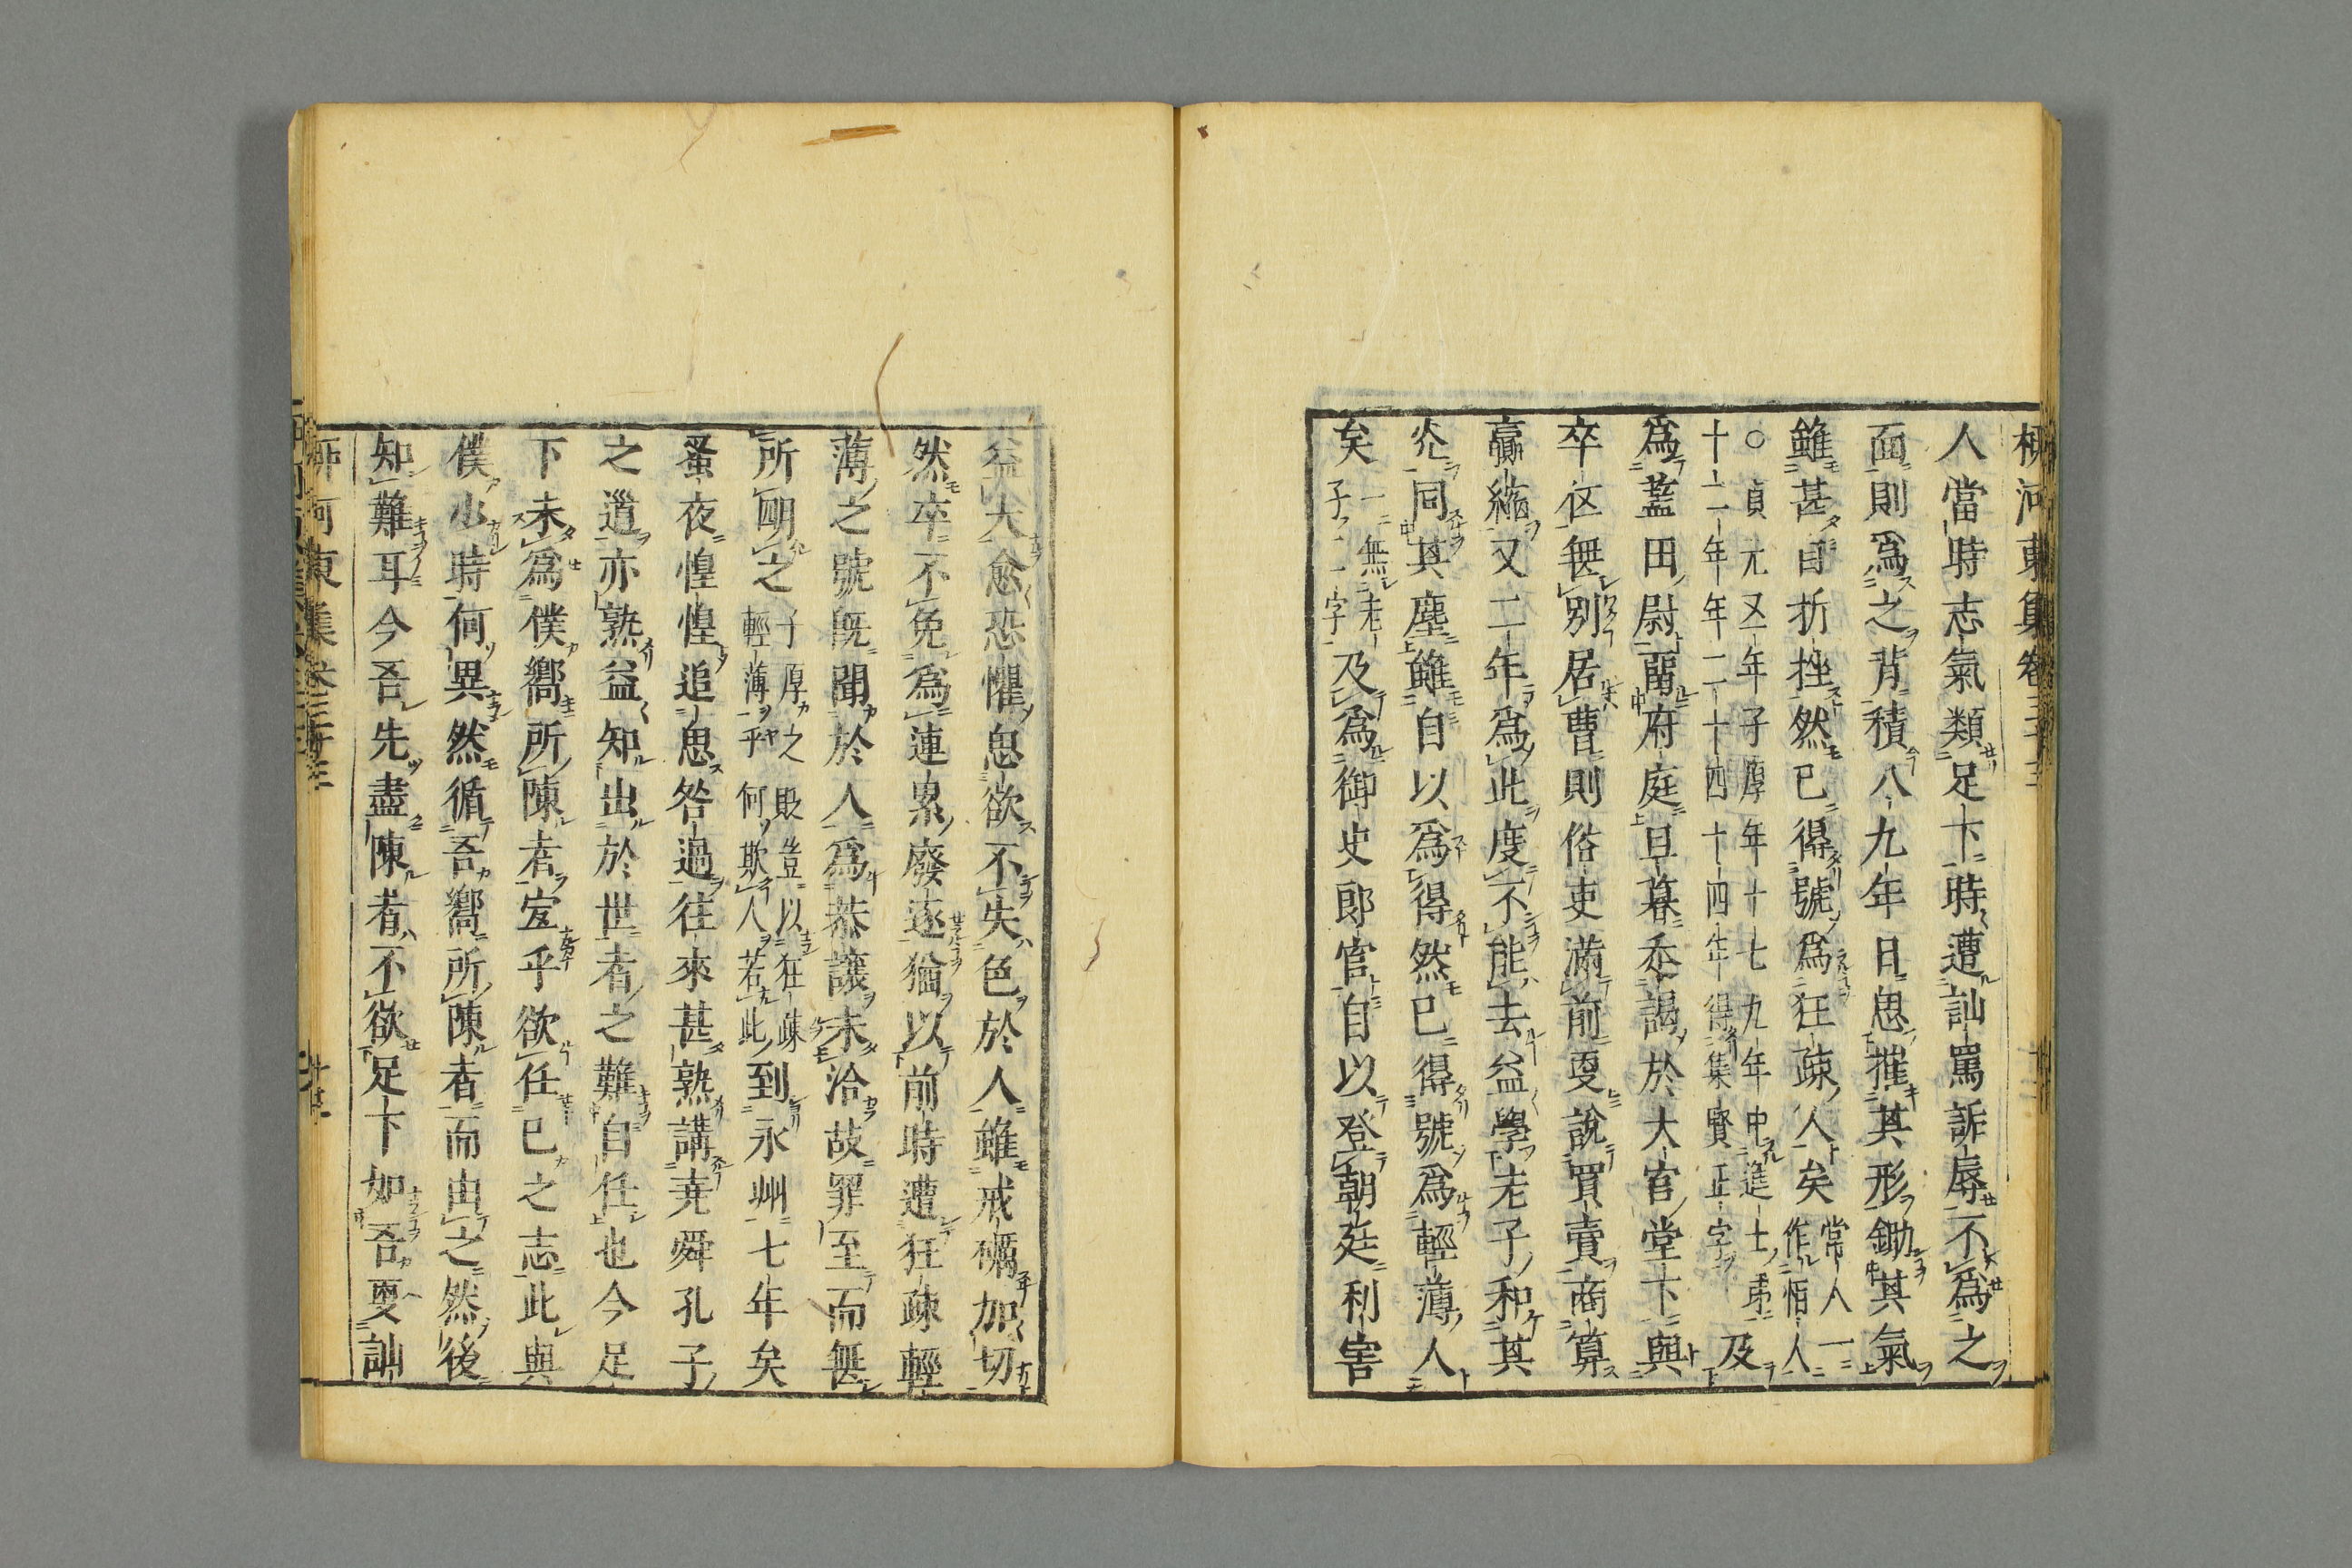 柳河東集卷三十三
人當時志氣類足下時遭訕罵訴辱不爲之
面則爲之背積八九年日思摧其形鋤其氣
雖甚自折挫然已得號爲狂疎人矣常人一作恒人
○貞元五年子厚年十七九年中進士第十二年年二十四十四年得集賢正字及
爲藍田尉留府庭旦暮走謁於大官堂下與
卒伍無別居曹則俗吏滿前更說買賣商算
贏縮又二年爲此度不能去益學老子和其
光同其塵雖自以爲得然已得號爲輕薄人
矣一無老子二字及爲御史郎官自以登朝廷利害
益大愈恐懼思欲不失色於人雖戒礪加切
然卒不免爲連累廢逐猶以前時遭狂疎輕
薄之號既聞於人爲恭讓未洽故罪至而無
所明之子厚之貶豈以狂疎輕薄乎何欺人若此到永州七年矣
蚤夜惶惶追思咎過往來甚熟講堯舜孔子
之道亦熟益知出於世者之難自任也今足
下未爲僕嚮所陳者宜乎欲任己之志此與
僕少時何異然循吾嚮所陳者而由之然後
知難耳今吾先盡陳者不欲足下如吾更訕
柳河東集卷三十三